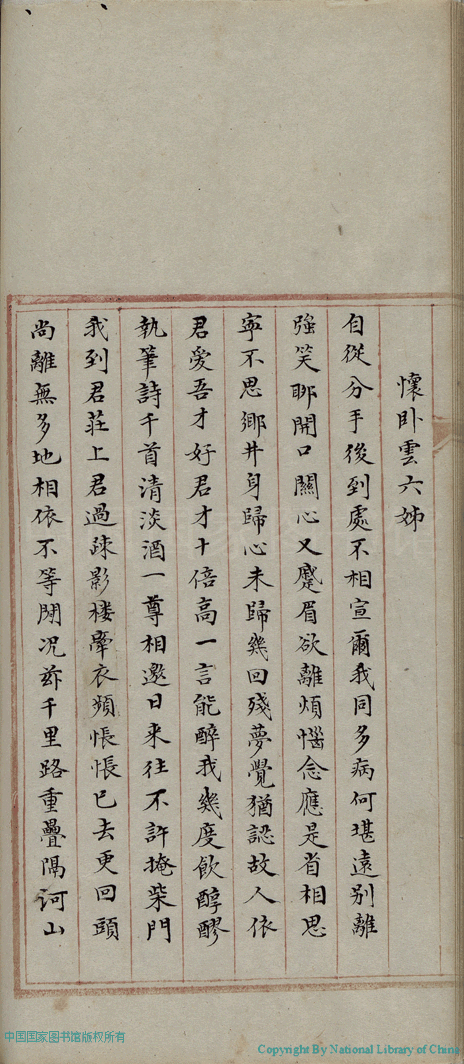 懷卧雲六姊
自從分手後到處不相宣爾我同多病何堪遠別離
強笑聊開口關心又蹙眉欲離煩惱念應是省相思
寧不思鄉井身歸心未歸幾回殘夢覺猶認故人依
君愛吾才好君才十倍高一言能醉我幾度飲醇醪
執筆詩千首清淡酒一尊相邀日来往不許掩柴門
我到君莊上君過疎影楼牽衣頻悵悵已去更回頭
尚離無多地相依不等閒况茲千里路重疊隔河山
中国国家图书馆版权所有
Copyright By National Library of China